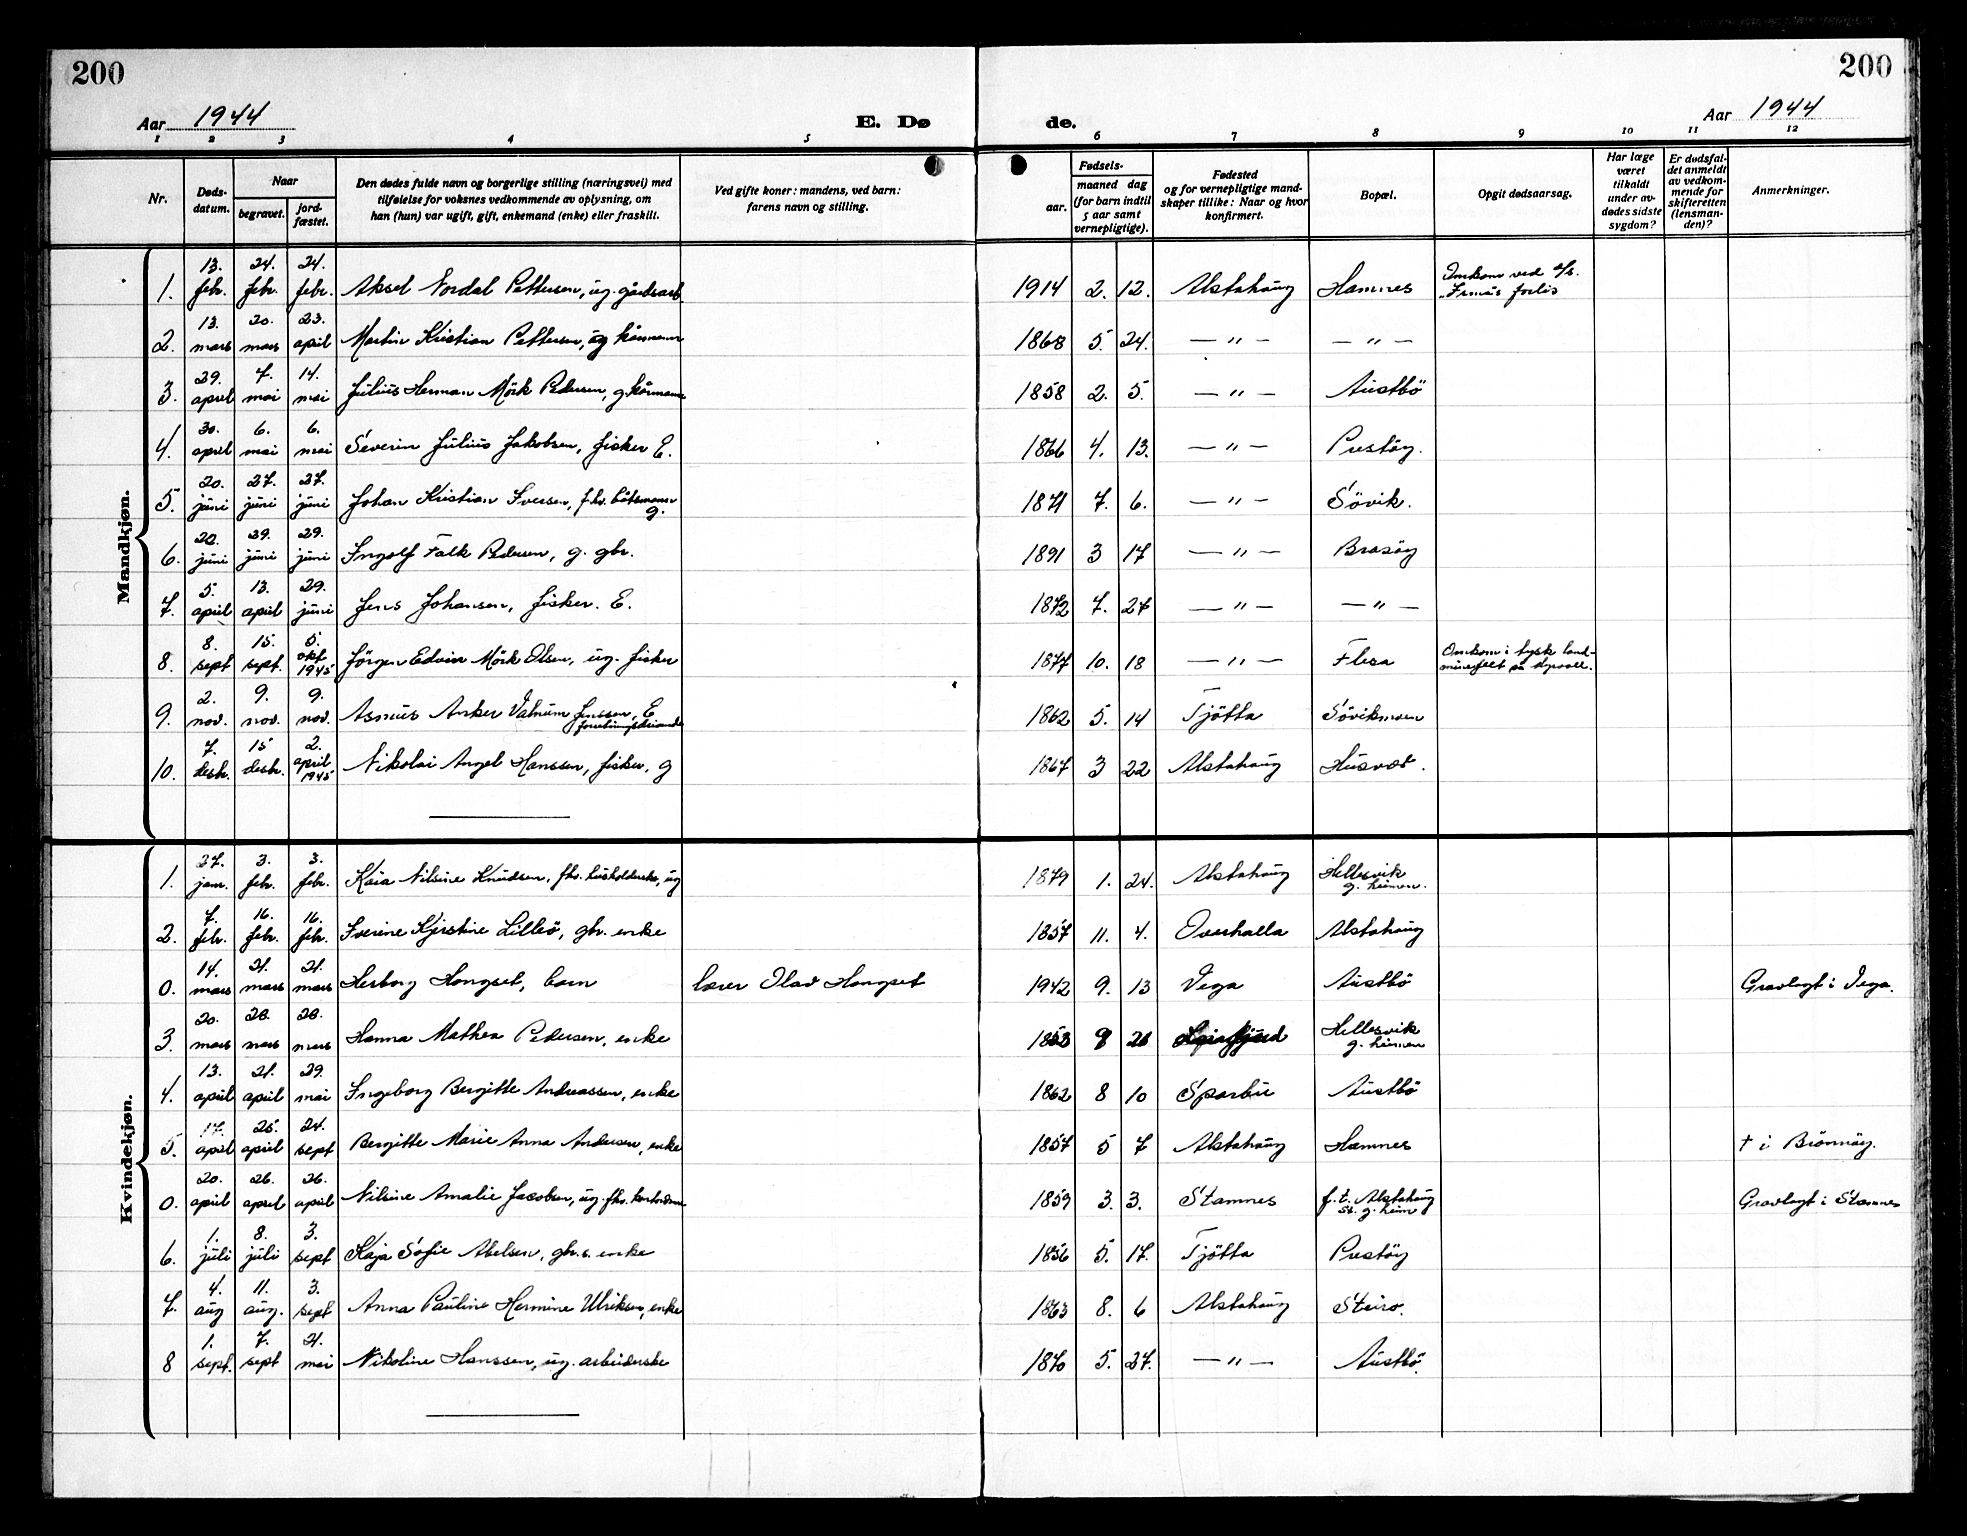 200
200
Aar 1944
E. Dø
de.
Aar 1944
1 2 3 4 5 6 7 8 9 10 11 12
Nr.
Døds-
datum.
Naar
begravet.
jord-
fæstet.
Den dødes fulde navn og borgerlige stilling (næringsvei) med
tilføielse for voksnes vedkommende av oplysning, om
han (hun) var ugift, gift, enkemand (enke) eller fraskilt.
Ved gifte koner: mandens, ved barn:
farens navn og stilling.
Fødsels-
aar.
maaned dag
(for barn indtil
5 aar samt
vernepligtige).
Fødested
og for vernepligtige mand-
skaper tillike: Naar og hvor
konfirmert.
Bopæl.
Opgit dødsaarsag.
Har læge
været
tilkaldt
under av-
dødes sidste
sygdom?
Er dødsfal-
det anmeldt
av vedkom-
mende for
skifteretten
(lensman-
den)?
Anmerkninger.
Mandkjøn.
1. 13. febr. 24. febr. 24. febr. Aksel Nordal Pettersen, ug. gårdsarb. 1914 2. 12. Alstahaug Hamnes Omkom ved d/s.
"Irma's forlis
2. 13. mars 20. mars 23. april Martin Kristian Pettersen, ug kårmann 1868 5. 24. — " — — " —
3. 29. april 7. mai 14. mai Julius Herman Mörk Pedersen, g. kårmann 1858 2. 5. — " — Austbö
4. 30. april 6. mai 6. mai Severin Julius Jakobsen, fisker E. 1866 4. 13. — " — Prestöy.
5. 20. juni 27. juni 27. juni Johan Kristian Iversen, fhv. båtsmann
g. 1871 7. 6. — " — Sövik.
6. 22. juni 29. juni 29. juni Ingolf Falk Pedersen, g. gbr. 1891 3 17 — " — Brasöy
7. 5. april 13. april 29. juni Jens Johansen, fisker. E. 1872 7. 27 — " — — " —
8. 8. sept 15. sept. 5. okt 1945 Jörgen Edvin Mörk Olsen, ug. fisker 1877 10. 18 — " — Flesa Omkom i tysk land-
minefelt på
9. 2. nov. 9. nov. 9. nov. Asmus Anker Valnum Jenssen, E
1862 5. 14 Tjötta Sövikmoen
10. 7. desbr. 15 desbr. 2. april 1945 Nikolai Angel Hanssen, fisker, g 1867 3 22 Alstahaug Husvær.
Kvindekjøn.
1. 27. jan. 3. febr. 3. febr. Kaia Nilsine Knudsen, fhv. husholderske, ug 1879 1. 24. Alstahaug Hellesvik
g. heimen.
2. 7. febr. 16. febr. 16. febr. Iverine Kjerstine Lilleö, gbr. enke 1857 11. 4. Overhalla Alstahaug
0. 14. mars 21. mars 21. mars Herborg Hongset, barn lærer Olav Hongset 1942 9. 13 Vega Austbö Gravlagt i Vega.
3. 20. mars 28. mars 28. mars Hanna Mathea Pedersen, enke 1853 9 26 Hellesvik
g. heimen
4. 13. april 21. april 29. mai Ingeborg Bergitte Andreassen, enke 1862 8 10 Sparbu Austbö
5. 17. april 25. april 24. sept Bergitte Marie Anna Andersen, enke 1857 5 7 Alstahaug Hamnes † i Brönnöy.
0. 20. april 26. april 26. april Nilsine Amalie Jacobsen, ug. fhv. 1859 3. 3. Stamnes f.t. Alstahaug
st. g. heim Gravlagt i Stamnes
6. 1. juli 8. juli 3. sept Kaja Sofie Abelsen, gbr.s. enke 1856 5. 17. Tjötta Prestöy
7. 4. aug 11. aug. 3. sept Anna Pauline Hermine Ulriksen, enke 1863 8. 6 Alstahaug Steiro.
8 1. sept. 7. sept 21. mai Nikoline Hanssen, ug. arbeiderske 1870 5. 27. — " — Austbö.